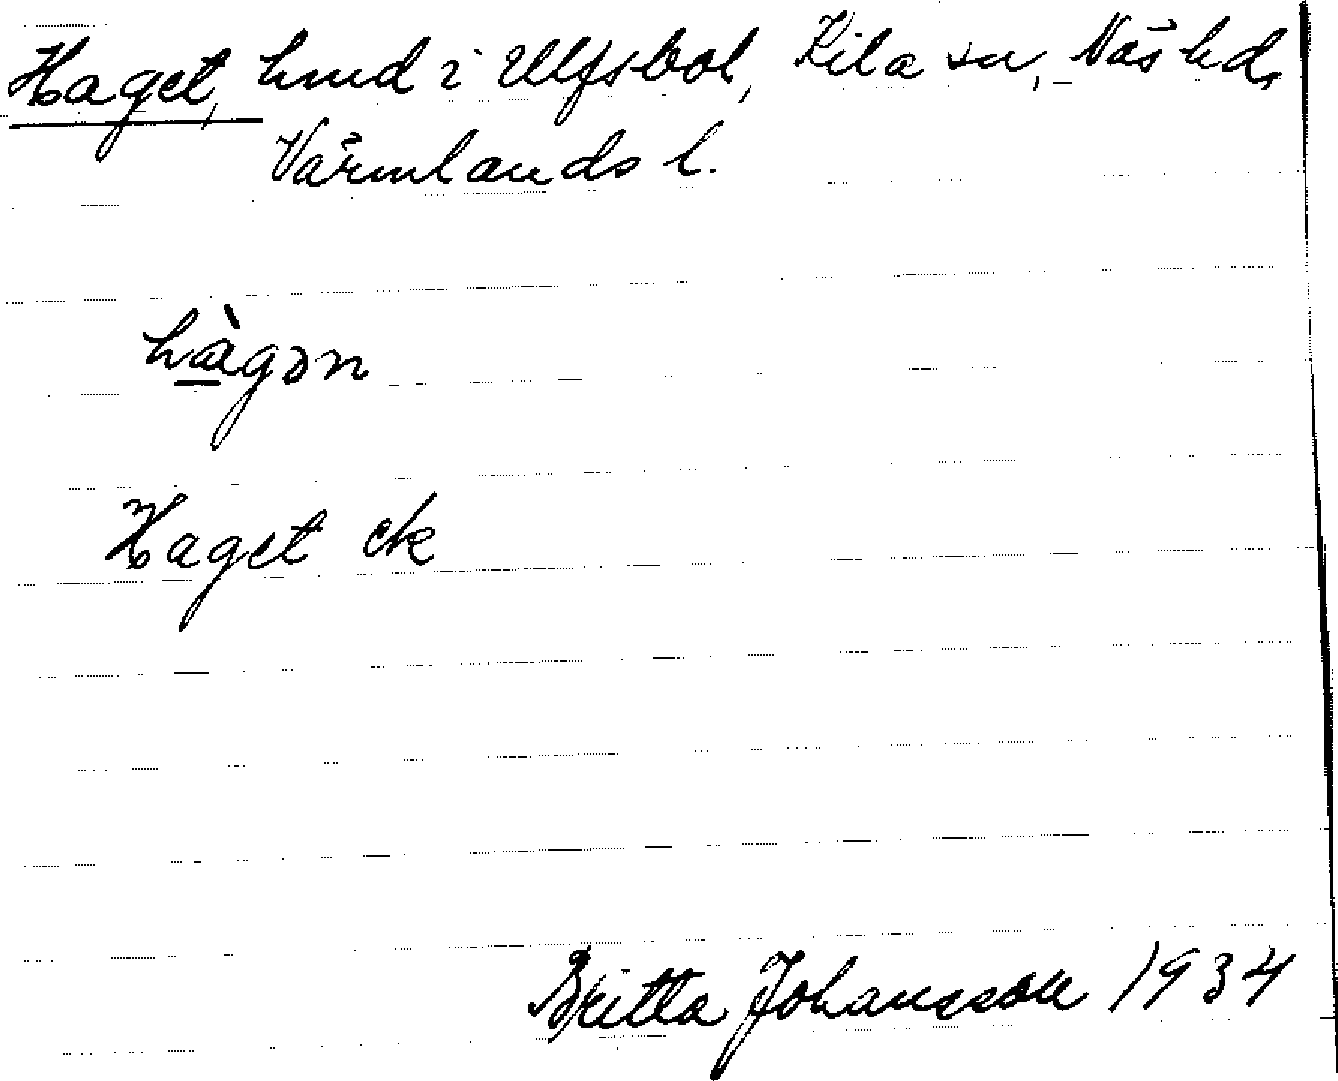 Haget, hmd i Ulfsbol, Kila sn, Näs hd,
Värmlands l.
hàgən
Haget ek
Britta Johansson 1934